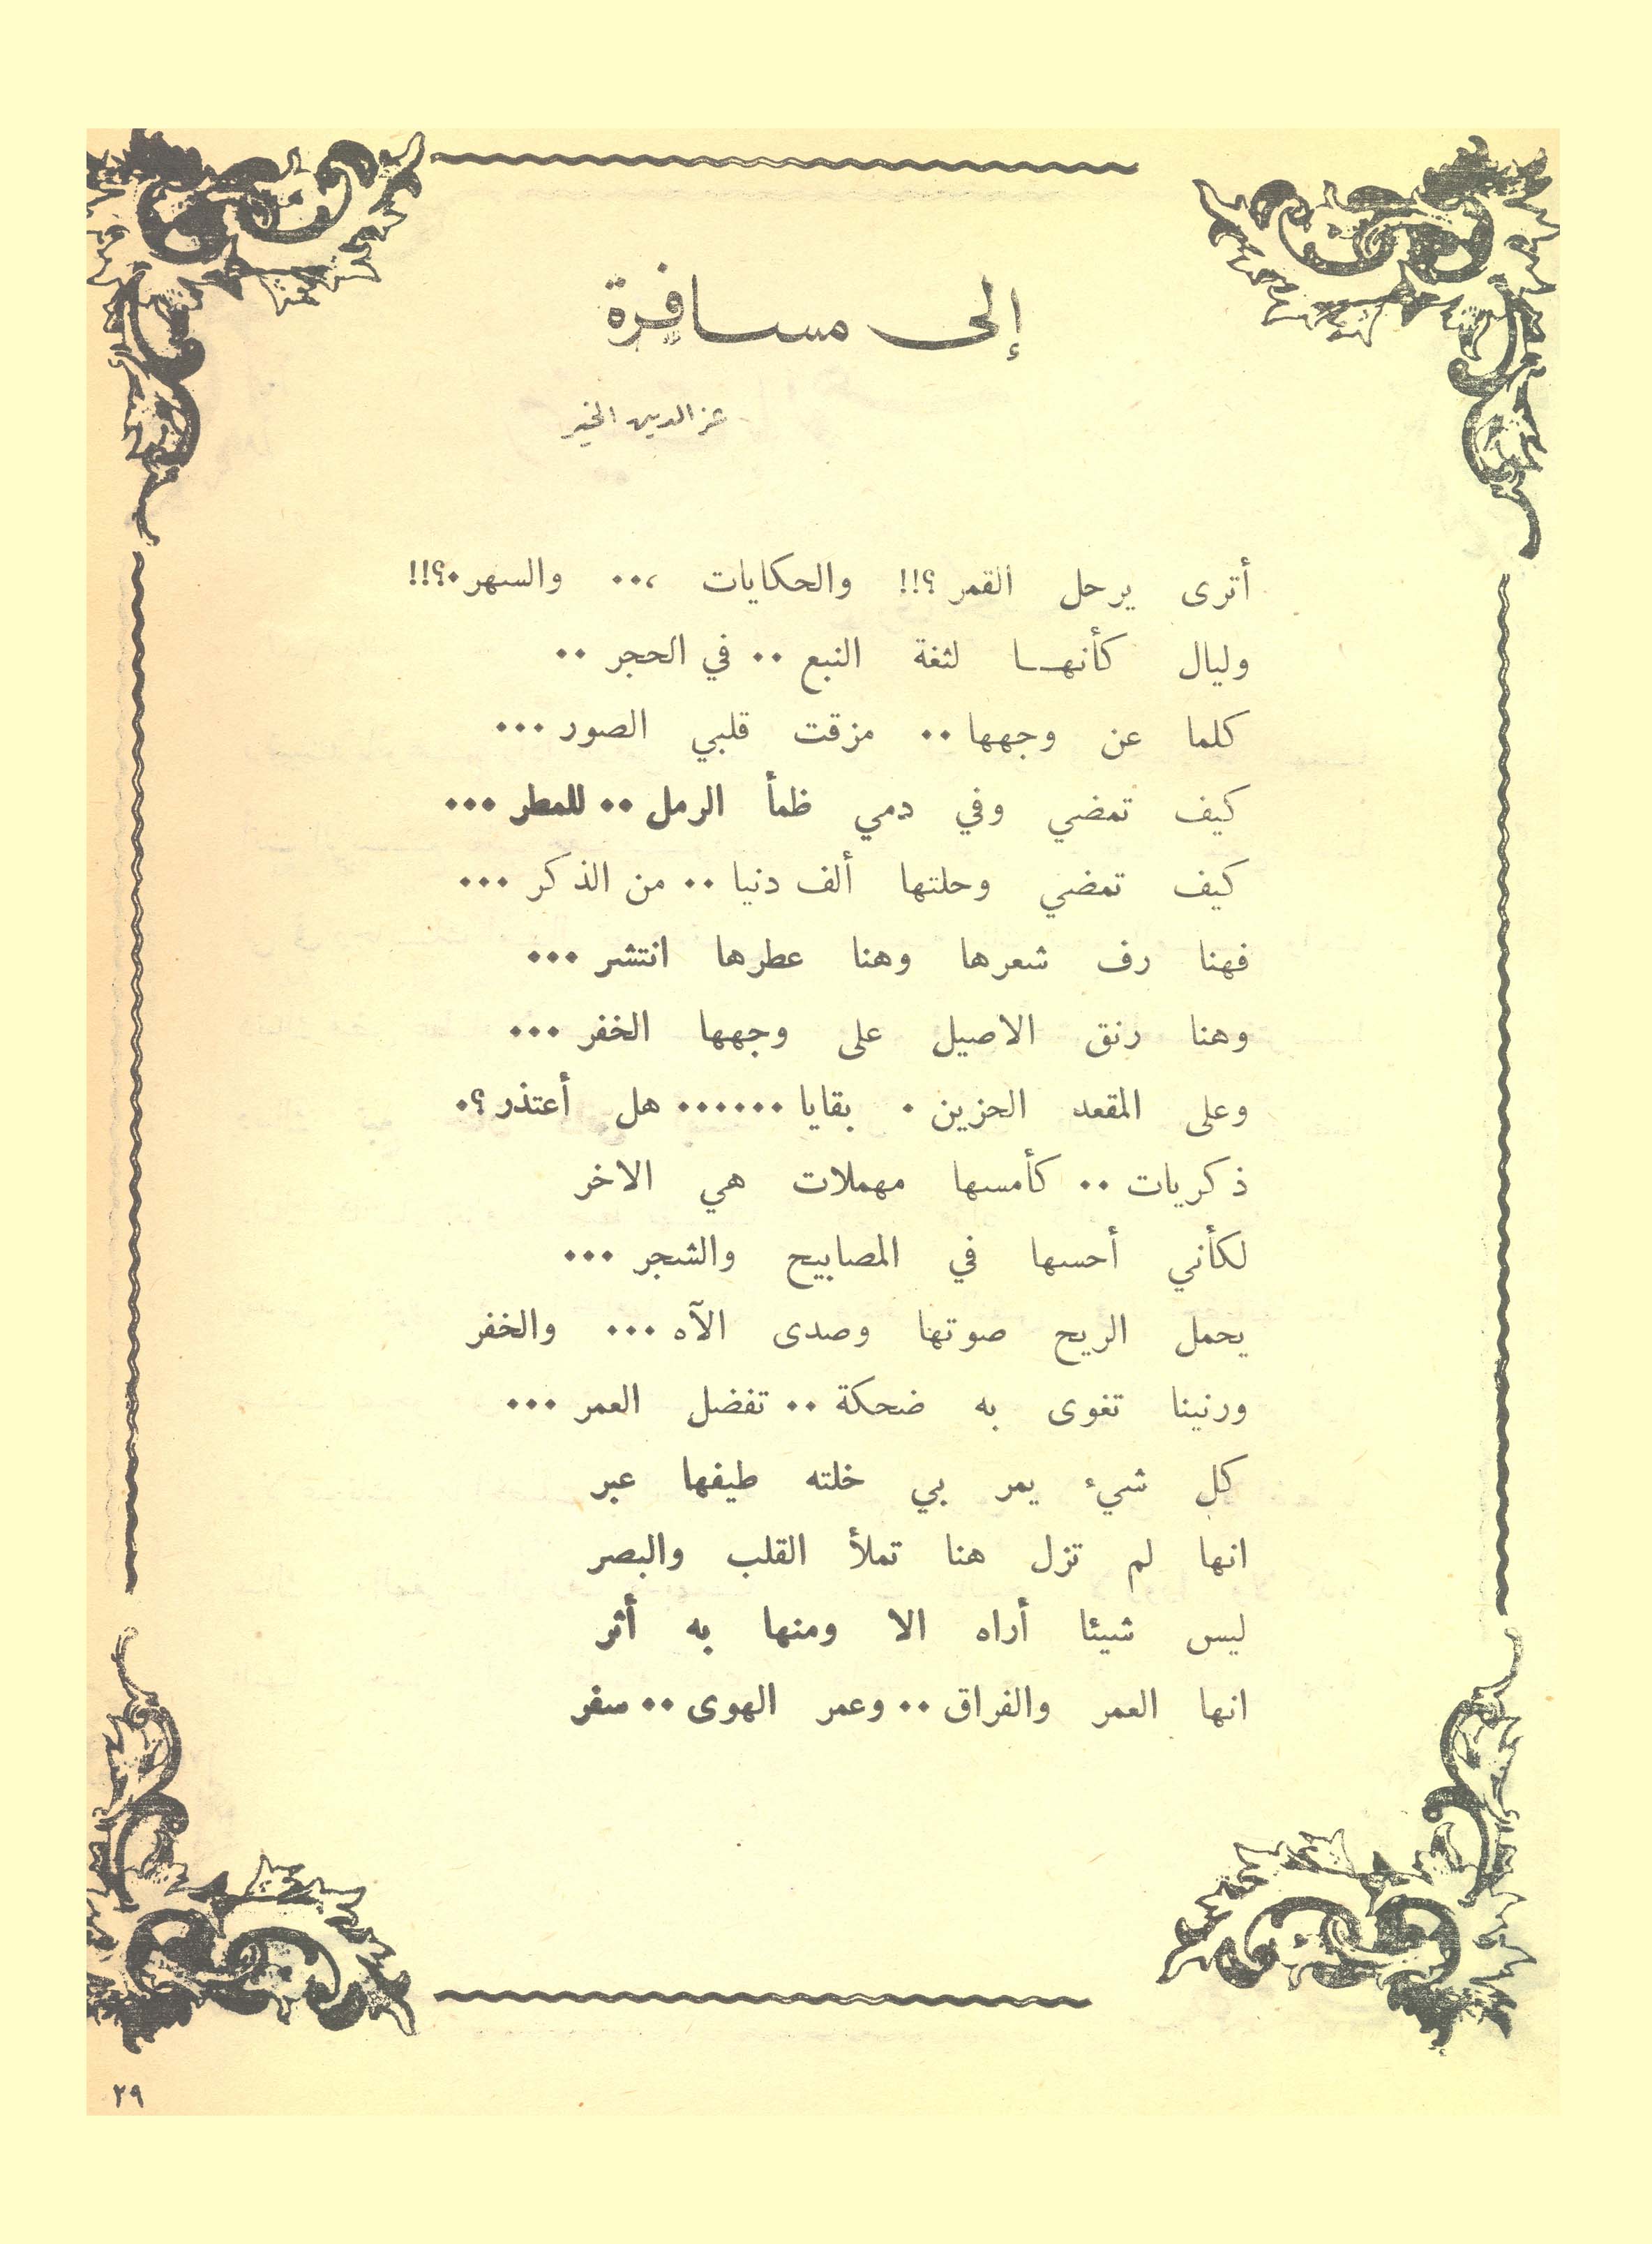 إلى مسافرة
عز الدين الخير
أترى يرحل القمر ؟!! والحكايات ،.. والسهر.؟!!
وليال كأنهـا لثغة النبع .. في الحجر ..
كلما عن وجهها .. مزقت قلبي الصور ...
كيف تمضي وفي دمي ظمأ الرمل .. للمطر ...
كيف تمضي وحلتها ألف دنيا .. من الذكر ...
فهنا رف شعرها وهنا عطرها انتشر ...
وهنا رنق الاصيل على وجهها الخفر ...
وعلى المقعد الحزين . بقايا ...... هل أعتذر ؟.
ذكريات .. كأمسها مهملات هي الاخر
لكأني أحسها في المصابيح والشجر ...
يحمل الريح صوتها وصدى الآه ... والخفر
ورنينا تغوى به ضحكة .. تفضل العمر ...
كل شيء يمر بي خلته طيفها عبر
انها لم تزل هنا تملأ القلب والبصر
ليس شيئا أراه الا ومنها به أثر
انها العمر والفراق .. وعمر الهوى .. سفر
٢٩